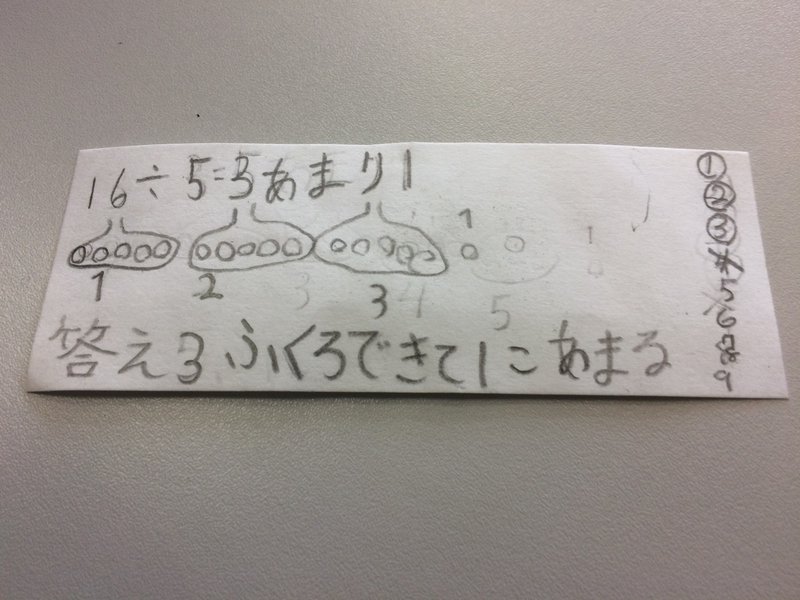 16÷5=3あまり1
1
1 2 3
答え3ふくろできて1こあまる
①
②
③
4
5
6
7
8
9